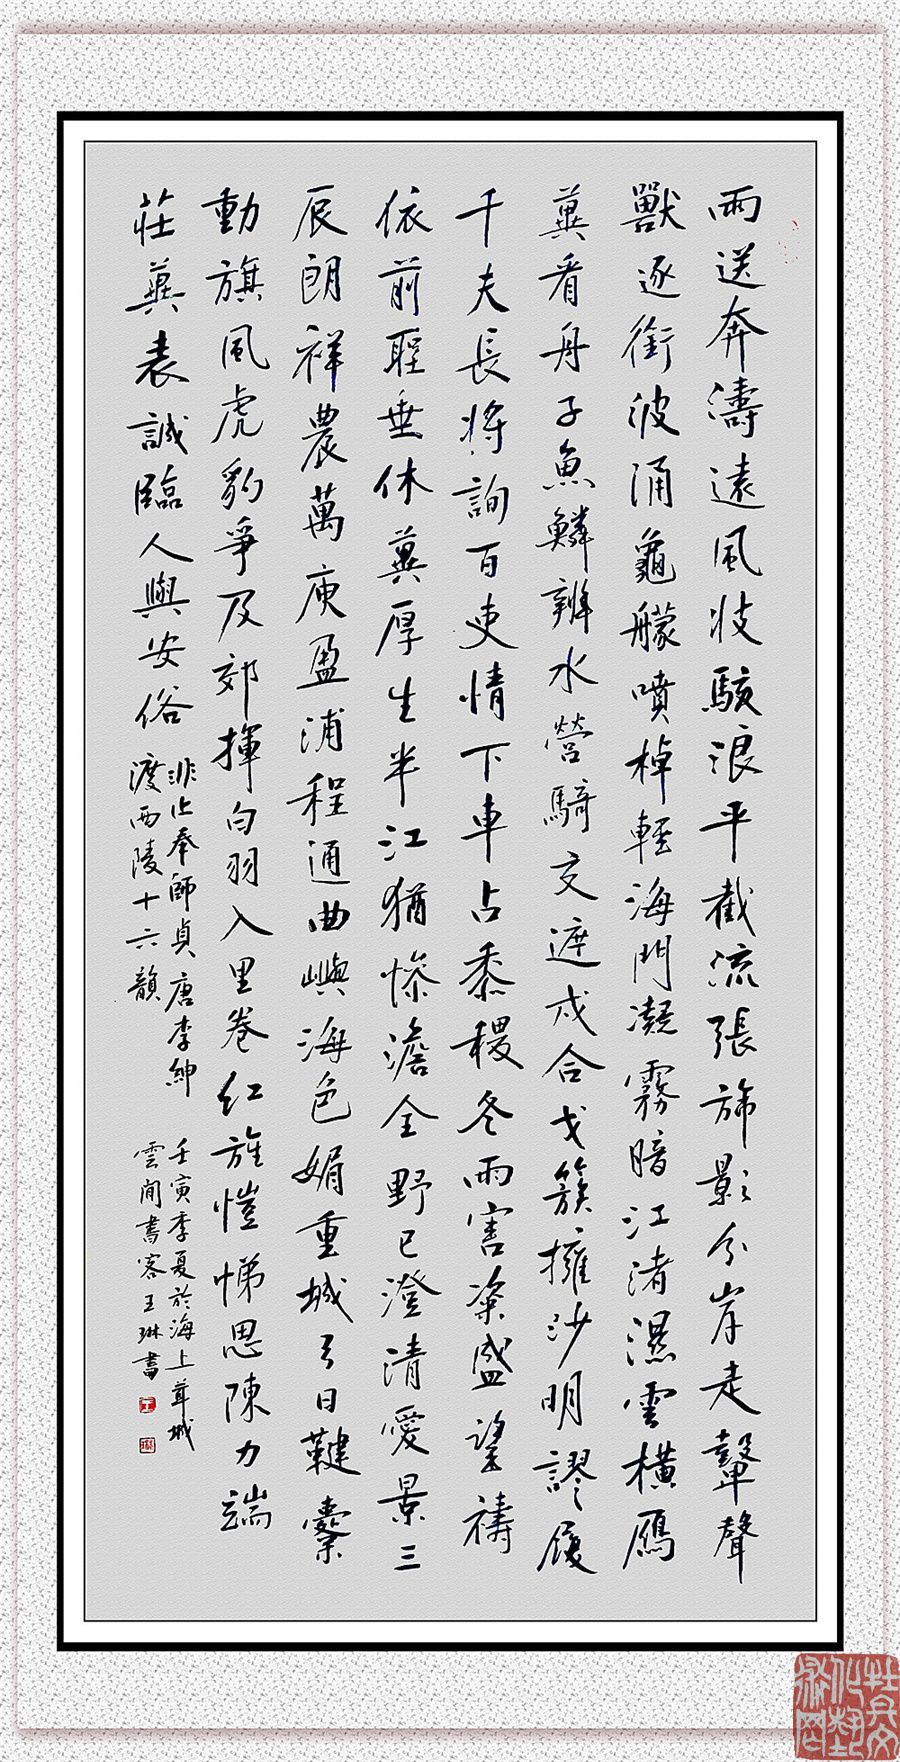 雨送奔濤遠風收駭浪平截流張斾影分岸走鼙聲
獸逐銜波涌龜艨噴棹輕海門凝霧暗江渚濕雲橫鴈
翼看舟子魚鱗辨水營騎交遮戍合戈簇擁沙明謬履
千夫長將詢百吏情下車占黍稷冬雨害粢盛望禱
依前聖垂休冀厚生半江猶慘澹全野已澄清愛景三
辰朗祥農萬庾盈浦程通曲嶼海色媚重城弓日鞬櫜
動旗風虎豹爭及郊揮白羽入里卷紅旌愷悌思陳力端
莊冀表誠臨人與安俗
非止奉師貞唐李紳
渡西陵十六韻
壬寅季夏於海上茸城
雲間書客王琳書